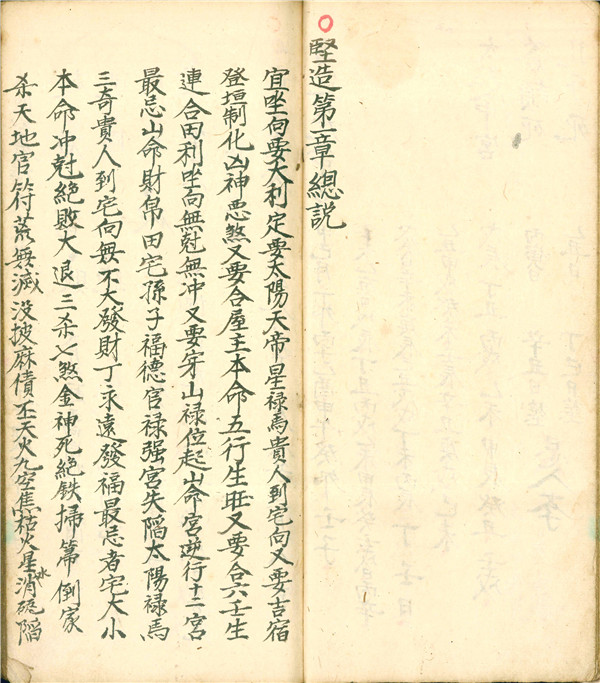 竪造第一章總説
宜坐向要大利定要太陽天帝星禄馬貴人到宅向又要吉宿
登垣制化凶神悪煞又要合屋主本命五行生旺又要合六壬生
連合田利坐向無尅無冲又要守山禄位起山命宮逆行十二宮
最忌山命財帛田宅孫子福德官禄强宮失陷太陽禄馬
三奇貴人到宅向毋不大發財丁永遠發福最忌者宅大小
本命冲尅絶敗大退三杀七煞金神死絶鉄掃箒倒家
杀天地官符荒蕪滅没披麻債丕天火九空焦枯火星消氷硯陷